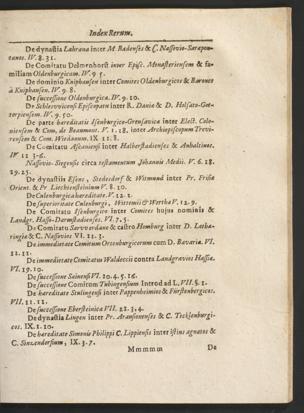 Index Rerum.
De dynastia Lahrana inter M. Badenses & C. Nassovio-Sarapon-
tanos. IV. 8. 31.
De Comitatu Delmenhorst inter Episc. Monasteriensem & fa-
miliam Oldenburgicam. IV. 9 5.
De dominio Kniphausen inter Comites Oldenburgicos & Barones
à Kniphausen. IV. 9. 8.
De successione Oldenburgica. IV. 9. 10.
De Schleswicensi Episcopatu inter R. Daniæ & D. Holsato-Got-
torpiensem. IV. 9. 50.
De parte hereditatis Isenburgico-Grensavica inter Elect. Colo-
niensem & Com. de Beaumont. V. 1. 18. inter Archiepiscopum Trevi-
rensem & Com. Wiedanum. IX 11. 8.
De Comitatu Ascaniensi inter Halberstadienses & Anhaltinos.
IV 12 3-6.
Nassovio-Siegensis circa testamentum Johannis Medii. V. 6. 18.
29. 25.
De dynastiis Esens, Stedesdorf & Witmund inter Pr. Frisiæ
Orient. & Pr. Liechtensteinium V. 8. 10.
De Culenburgica hareditate. V. 12. 1.
De superioritate Culenburgi, Wittemii & Werthæ V. 12. 9.
De Comitatu Isenburgico inter Comites hujus nominis &
Landgr. Hasso-Darmstadienses. VI. 7. 5.
De Comitatu Sarwerdano & castro Homburg inter D. Lotha-
ringiæ & C. Nassovios VI. 12. 3.
De immedietate Comitum Ortenburgicorum cum D. Bavaria. VI.
21. 11.
De immedietate Comitatus Waldeccii contra Landgravios Hassiæ.
VI. 19. 10.
De successione Sainensi VI. 20. 4. 5. 16.
De successione Comitum Tubingensium Introd ad L. VII. §. 1.
De hareditate Stulingensi inter Pappenheimios & Fürstenbergicos.
VII. 11. 11.
De successione Ebersteinica VII. 21. 3. 4.
De dynastia Lingen inter Pr. Arausionenses & C. Tecklenburgi-
cos. IX. 1. 10.
De hareditate Simonis Philippi C. Lippiensis inter istius agnatos &
C. Sinzendorfium, IX. 3. 7.
Mmmmm De